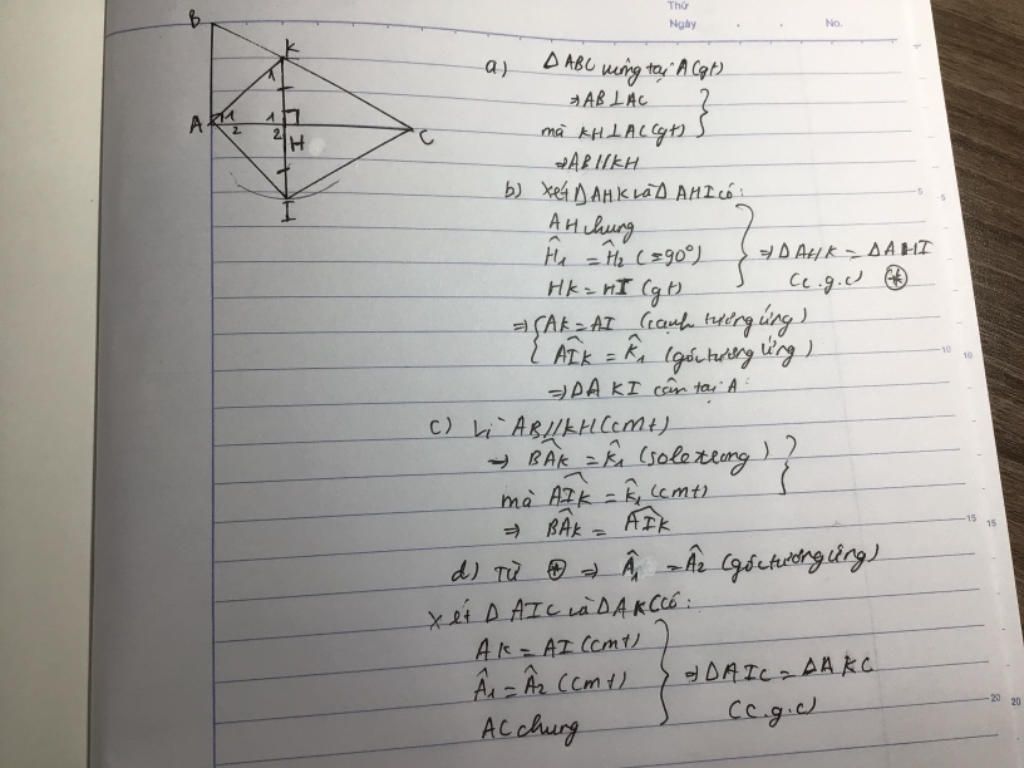 Thứ
Ngày . . No.
B
K
1
A 1 2
1 2 H
C
I
a) Δ ABC vuông tại A (gt)
⇒ AB ⊥ AC
mà KH ⊥ AC (gt)
⇒ AB // KH
b) Xét Δ AHK và Δ AHI có:
AH chung
Ĥ₁ = Ĥ₂ (= 90°)
HK = HI (gt)
⇒ Δ AHK = Δ AHI
(c.g.c) (*)
⇒ { AK = AI (cạnh tương ứng)
AÎK = K̂₁ (góc tương ứng)
⇒ Δ AKI cân tại A.
c) Vì AB // KH (cmt)
⇒ BÂK = K̂₁ (sole trong)
mà AÎK = K̂₁ (cmt)
⇒ BÂK = AÎK
d) Từ (*) ⇒ Â₁ = Â₂ (góc tương ứng)
Xét Δ AIC và Δ AKC có:
AK = AI (cmt)
Â₁ = Â₂ (cmt)
AC chung
⇒ Δ AIC = Δ AKC
(c.g.c)
5 5
10 10
15 15
20 20